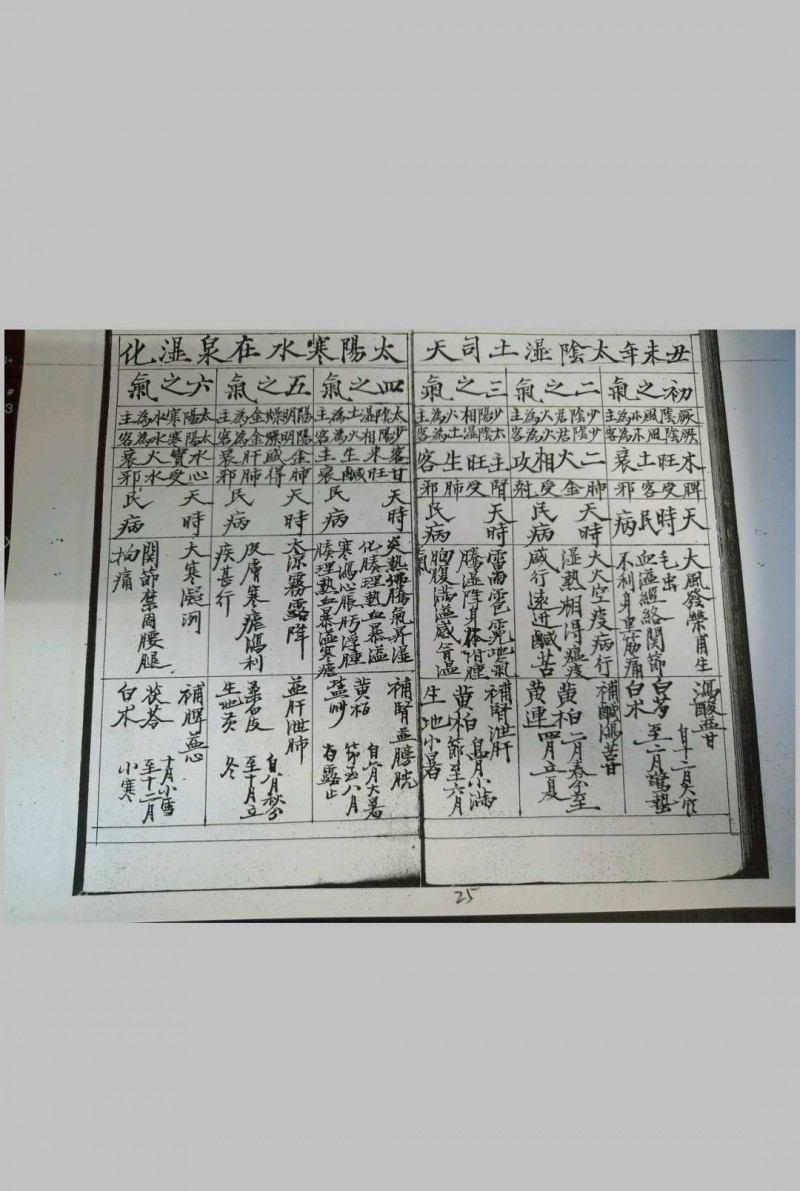 丑未年太陰濕土司天
太陽寒水在泉濕化
初之氣
厥陰風木為主
厥陰風木為客
木旺土衰
脾受客邪
天時民病
大風發榮甫生
毛出
血溢經絡関節
不利身重筋痛
瀉酸益甘
白芍
白朮
自十二月大寒
至二月驚蟄
二之氣
少陰君火為主
少陰君火為客
二火相攻
肺金受射
天時
民病
大火空疫病行
湿熱相得瘟疫
盛行遠近鹹苦
補鹹瀉苦
黄柏
黄連
二月春分至
四月立夏
三之氣
少陽相火為主
太陰温土為客
主旺生客
腎受肺邪
天時
民病
雷雨雹霓地氣
騰湿降身体附腫
胸腹満溢感冒温
氣
補腎泄肝
黄柏
生地
自四月小滿
節至六月
小暑
四之氣
太陰温土為主
少陽相火為客
客来生主
甘旺鹹衰
天時
民病
炎熱拂騰氣昇湿
化腠理熱血暴溢
寒瀉心脹肟浮腫
腠理熱血暴溢寒瘧
補腎益膀胱
黄柏
自六月大暑
節至八月
白露止
五之氣
陽明燥金為主
陽明燥金為客
金盛肝衰
肺得肺邪
天時
民病
大涼霧露降
皮膚寒瘧瀉利
疾甚行
益肝泄肺
桑白皮
生地炭
自八月秋分
至十月立
冬
六之氣
太陽寒水為主
太陽寒水為客
水實火衰
心受水邪
天時
民病
大寒凝冽
関節禁固腰腿
拘痛
補脾益心
茯苓
白朮
十月小雪
至十二月
小寒
25